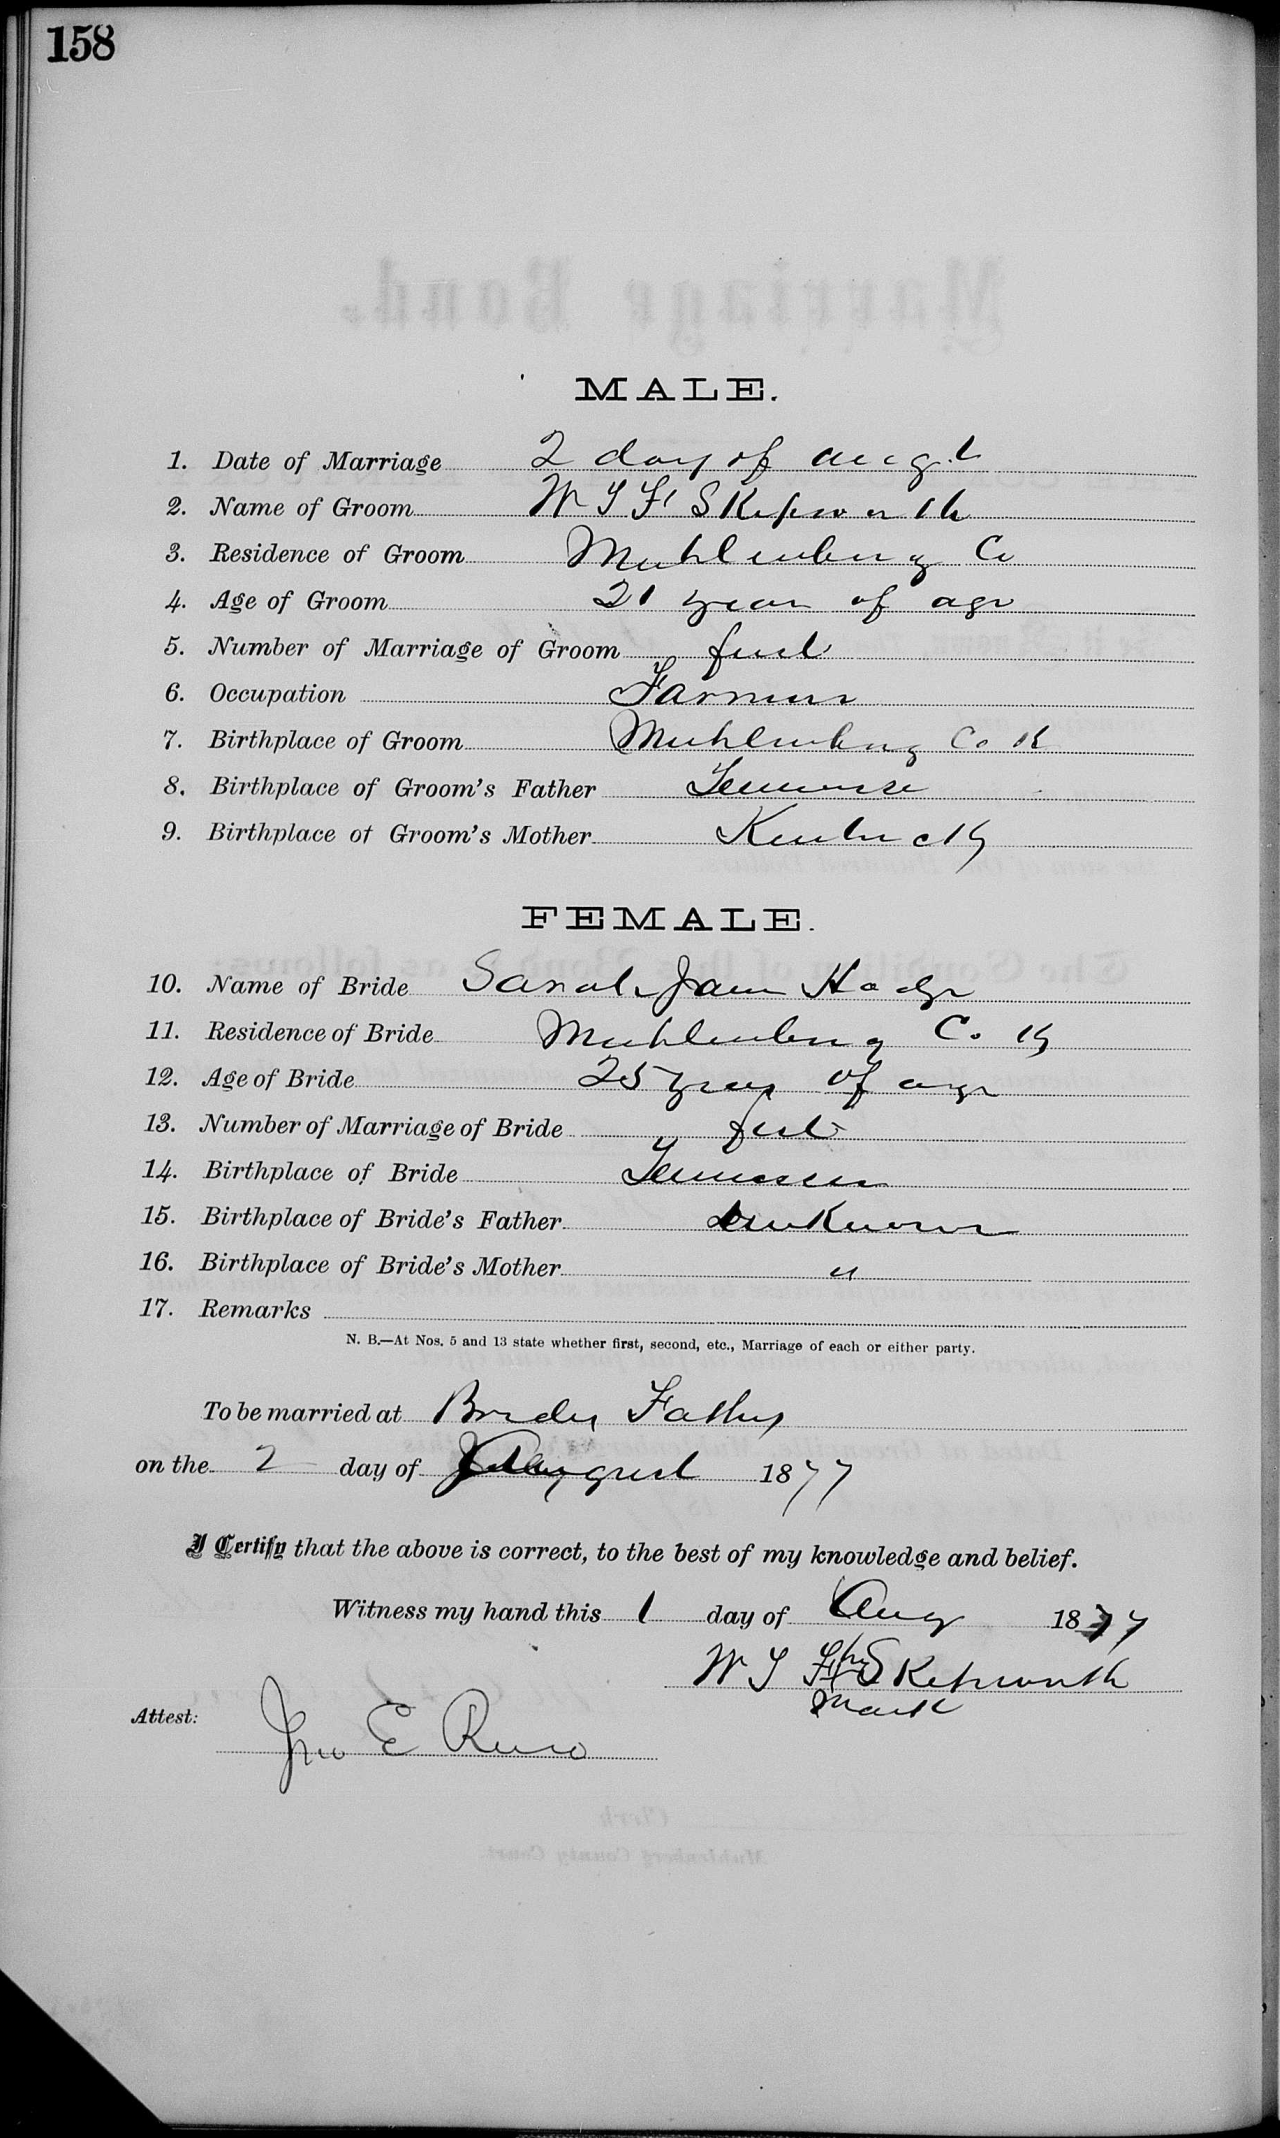 158
MALE.
1. Date of Marriage 2 day of Augt
2. Name of Groom W T F Skepworth
3. Residence of Groom Muhlenberg Co
4. Age of Groom 21 years of age
5. Number of Marriage of Groom first
6. Occupation Farmer
7. Birthplace of Groom Muhlenberg Co K
8. Birthplace of Groom's Father Tennessee
9. Birthplace of Groom's Mother Kentucky
FEMALE.
10. Name of Bride Sarah Jane Hodge
11. Residence of Bride Muhlenberg Co Ky
12. Age of Bride 25 years of age
13. Number of Marriage of Bride first
14. Birthplace of Bride Tennessee
15. Birthplace of Bride's Father unknown
16. Birthplace of Bride's Mother "
17. Remarks
N. B.—At Nos. 5 and 13 state whether first, second, etc., Marriage of each or either party.
To be married at Brides Fathers
on the 2 day of August 1877
I Certify that the above is correct, to the best of my knowledge and belief.
Witness my hand this 1 day of Aug 1877
W T F his Skepworth
mark
Attest:
Jno E Reno